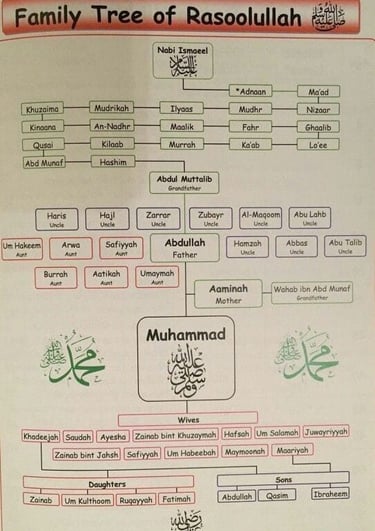 Family Tree of Rasoolullah ﷺ
Nabi Ismaeel
عليه السلام
*Adnaan Ma'ad
Khuzaima Mudrikah Ilyaas Mudhr Nizaar
Kinaana An-Nadhr Maalik Fahr Ghaalib
Qusai Kilaab Murrah Ka'ab Lo'ee
Abd Munaf Hashim
Abdul Muttalib
Grandfather
Haris Hajl Zarrar Zubayr Al-Maqoom Abu Lahb
Uncle Uncle Uncle Uncle Uncle Uncle
Um Hakeem Arwa Safiyyah Abdullah Hamzah Abbas Abu Talib
Aunt Aunt Aunt Father Uncle Uncle Uncle
Burrah Aatikah Umaymah
Aunt Aunt Aunt
Aaminah Wahab ibn Abd Munaf
Mother Grandfather
Muhammad
صلى الله عليه وسلم
محمد ﷺ محمد ﷺ
Wives
Khadeejah Saudah Ayesha Zainab bint Khuzaymah Hafsah Um Salamah Juwayriyyah
Zainab bint Jahsh Safiyyah Um Habeebah Maymoonah Maariyah
Daughters Sons
Zainab Um Kulthoom Ruqayyah Fatimah Abdullah Qasim Ibraheem